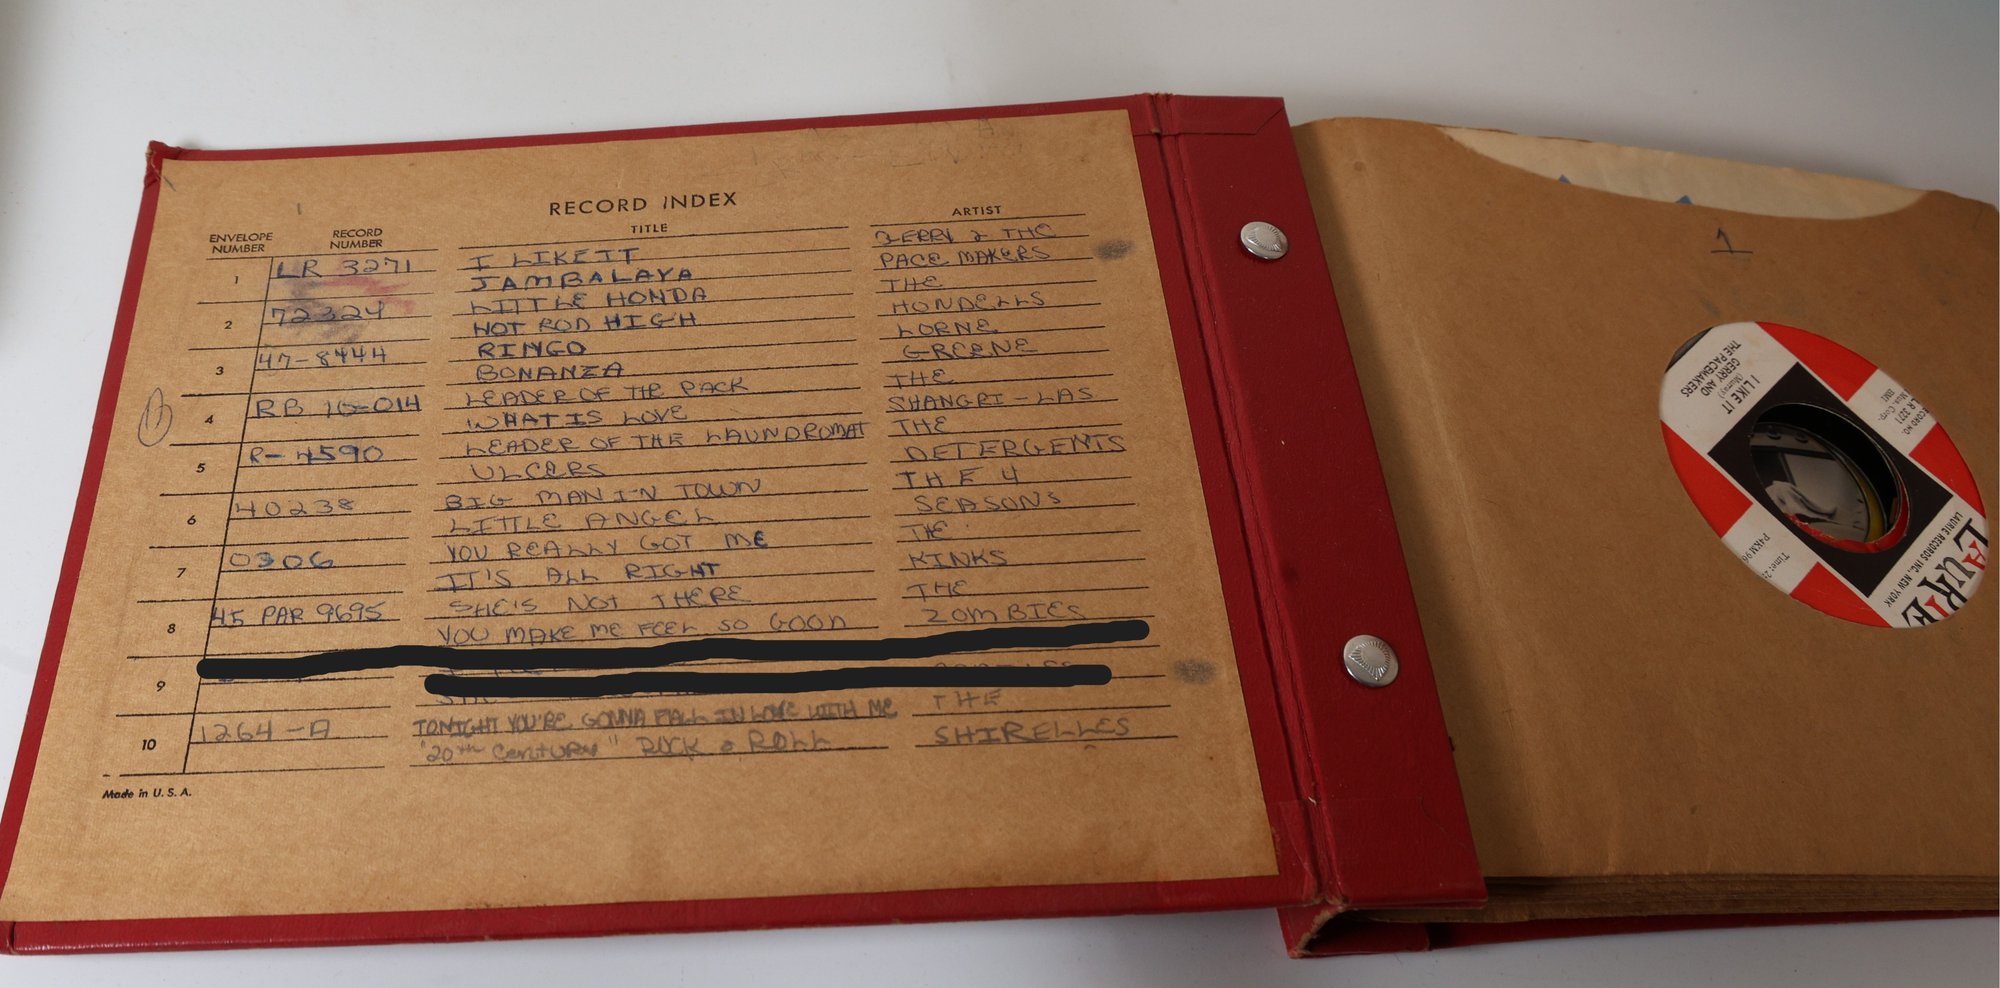 RECORD INDEX
ENVELOPE NUMBER RECORD NUMBER TITLE ARTIST
1 LR 3271 I LIKE IT GERRY & THE
JAMBALAYA PACE MAKERS
2 72324 LITTLE HONDA THE
HOT ROD HIGH HONDELLS
3 47-8444 RINGO LORNE
BONANZA GREENE
4 RB 10-014 LEADER OF THE PACK THE
WHAT IS LOVE SHANGRI-LAS
5 R-4590 LEADER OF THE LAUNDROMAT THE
ULCERS DETERGENTS
6 40238 BIG MAN IN TOWN THE 4
LITTLE ANGEL SEASONS
7 0306 YOU REALLY GOT ME THE
IT'S ALL RIGHT KINKS
8 45 PAR 9695 SHE'S NOT THERE THE
YOU MAKE ME FEEL SO GOOD ZOMBIES
9
10 1264-A TONIGHT YOU'RE GONNA FALL IN LOVE WITH ME THE
"20th CENTURY" ROCK & ROLL SHIRELLES
Made in U.S.A.
1
I LIKE IT
(Murray)
GERRY AND
THE PACEMAKERS
RECORD NO.
LR 3271
Corp.
BMI
LAURIE
LAURIE RECORDS INC., NEW YORK
Time: